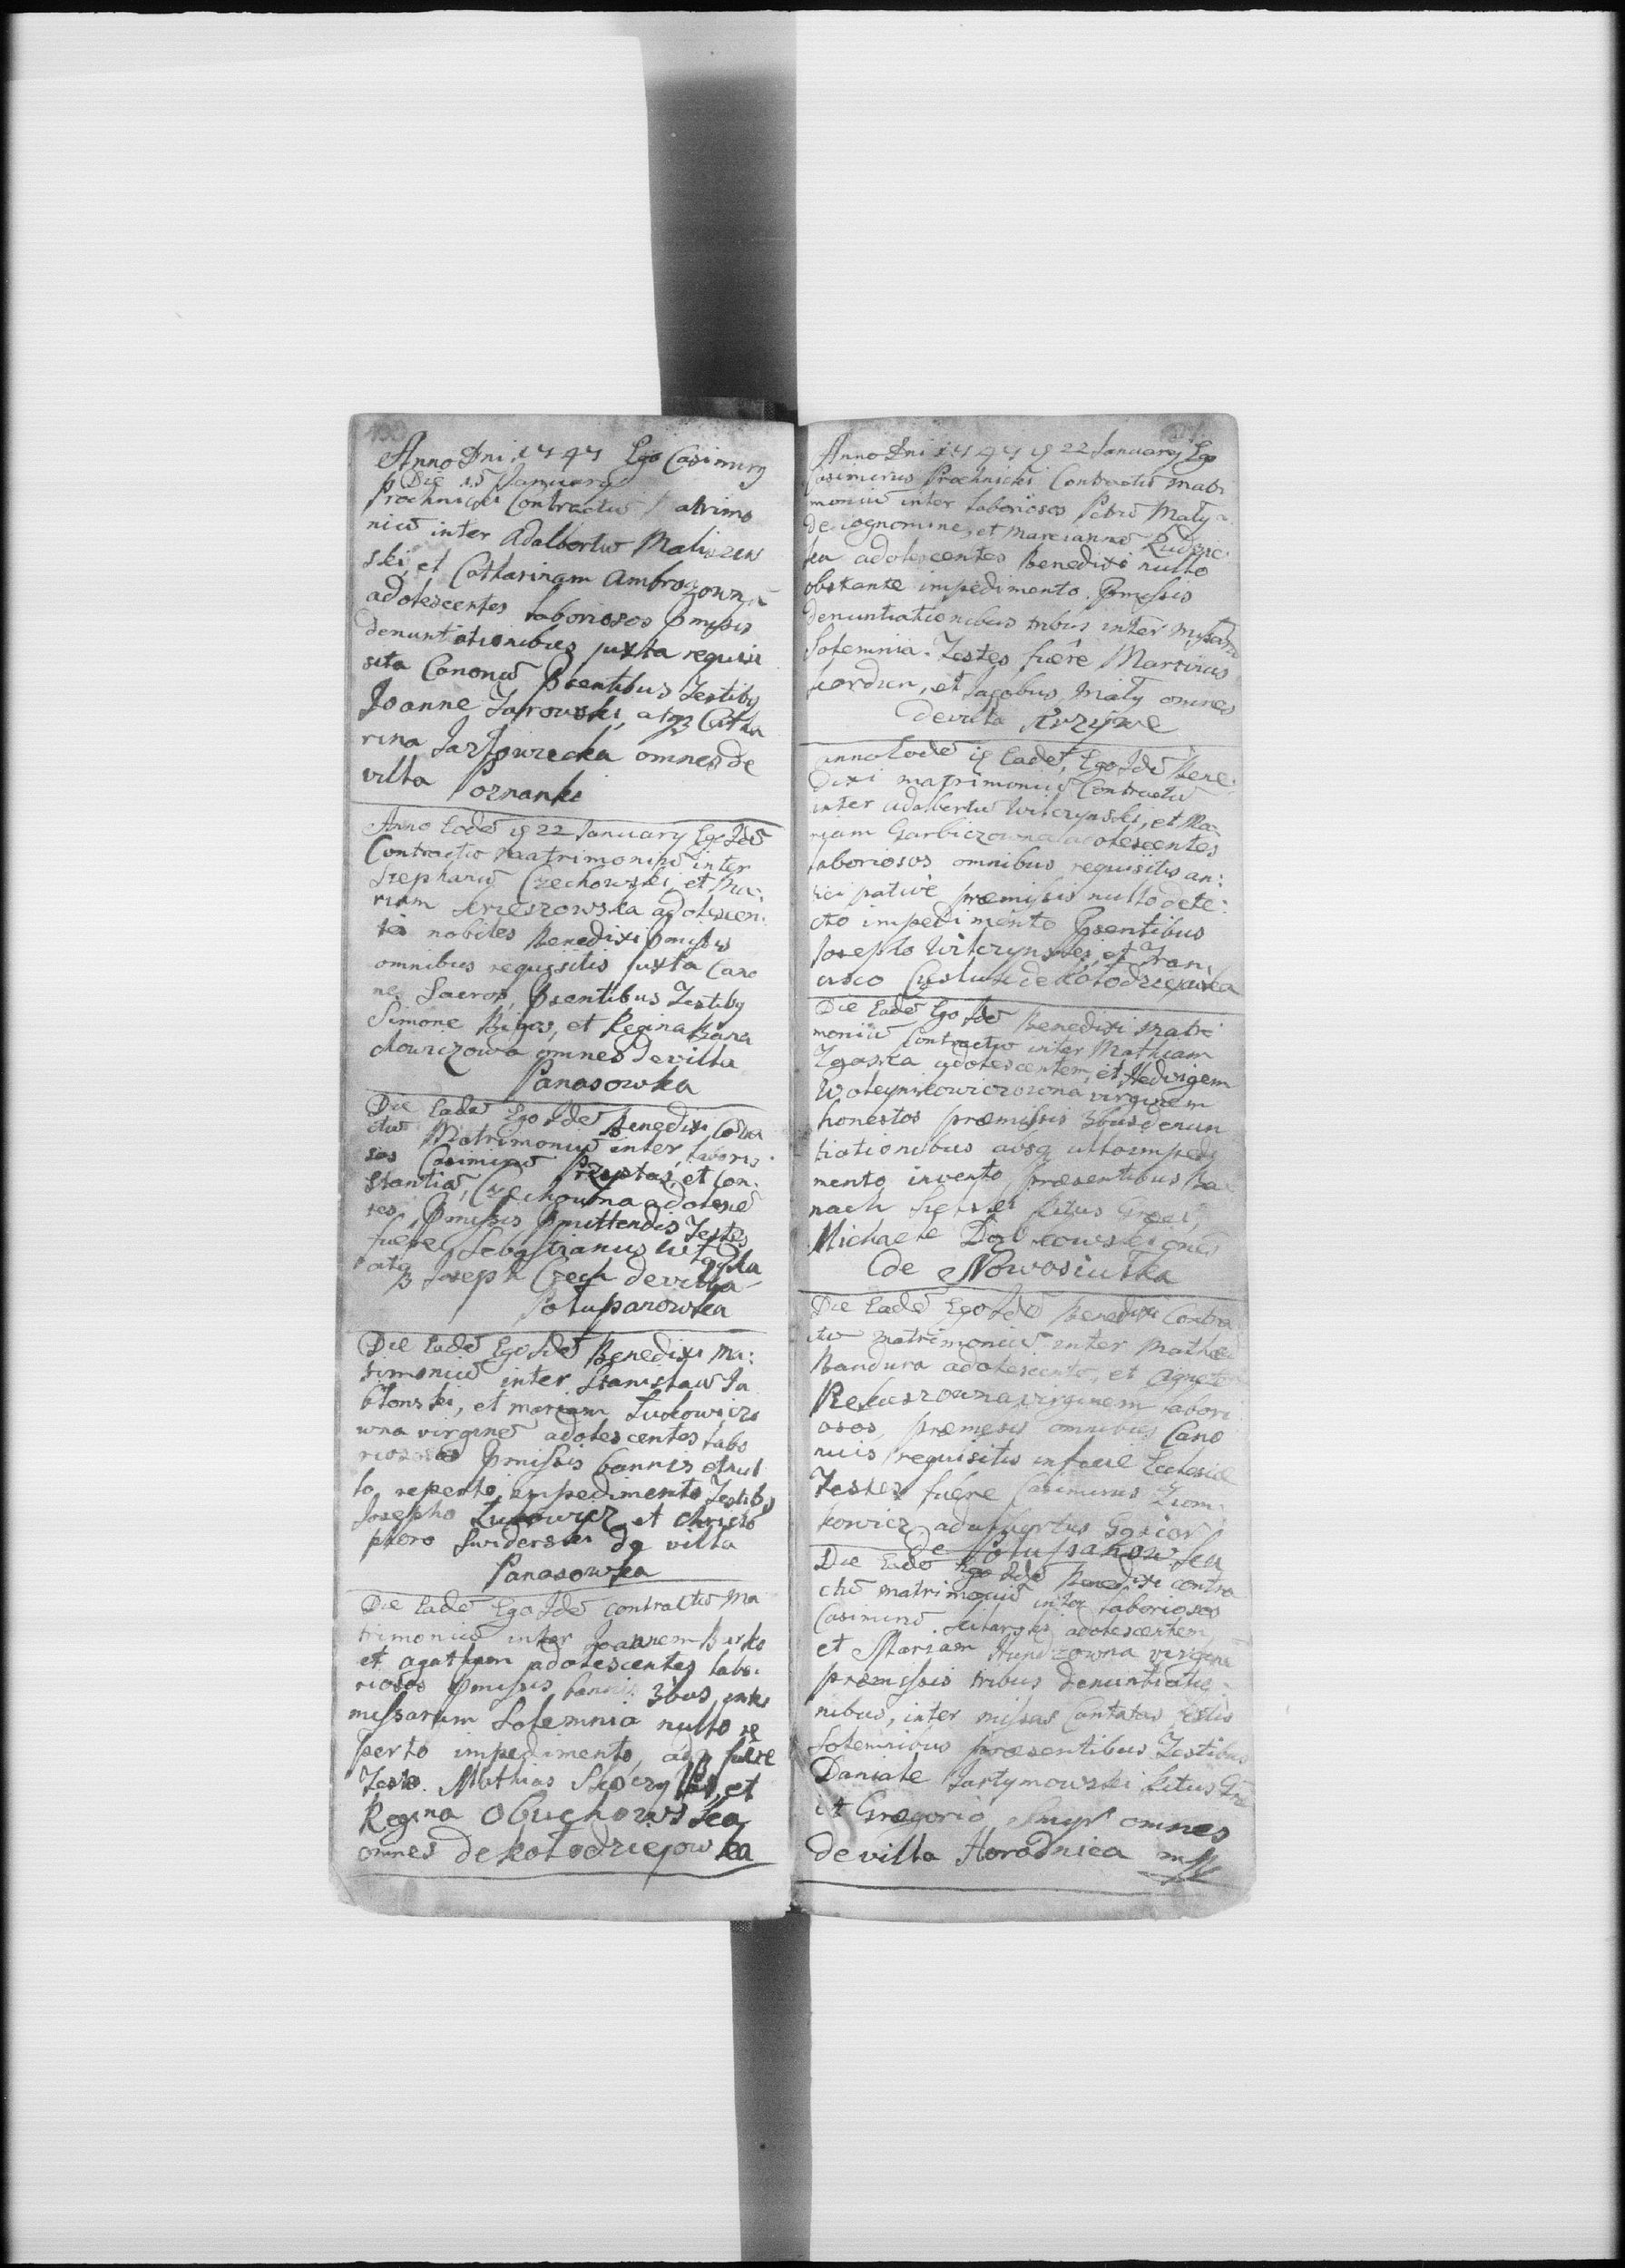 Anno Dni 1747 Ego Casimirg
Die 15 January
Prochnicki Contractũ Matrimo
niũ inter Adalbertũ Maliszew
ski, et Catharinam Ambrozowna
adolescentes laboriosos pmissis
denuntiationibus juxta requisi
sita Canonũ Psentibus Testibg
Joanne Jarowski, atqz Catha
rina Jazlowiecka omnes de
villa Poznanki
Anno Eodẽ 22 January Ego Idẽ
Contractũ Matrimoniũ inter
Stephanũ Czechowski, et Ma:
riam adolescen:
tes nobiles Benedixi pmissis
omnibus requisitis juxta Cano
nes Sacros, Psentibus Testibg
Simone Bigos, et Regina Bara
nowiczowa omnes de villa
Panasowka
Die Eadẽ Ego Idẽ Benedixi Contra
ctũ Matrimoniũ inter laborio
sos Casimirũ et Con:
stantiã Czechowna adolescẽ
tes, Pmissis pmittendis Testes
fuere Sebastianus
atqz Joseph Czech de villa
Potupanowka
Die Eadẽ Ego Idẽ Benedixi Ma:
trimoniũ inter Stanislaũ Ja
blonski, et Mariam Lukowiczo
wna virginẽ adolescentes labo
riosos Pmissis bannis et nul
lo reperto impedimento Testibg
Josepho Lukowicz et Christo
phoro Swiderski de villa
Panasowka
Die Eadẽ Ego Idẽ contractũ Ma
trimoniũ inter Joannem Burko
et Agatham adolescentes labo:
riosos pmissis bannis 3bus inter
missarum Solemnia nullo re
perto impedimento, adqz fuere
Testes Mathias et
Regina Obuchowska
omnes de Kolodziejowka
Anno Dni 1747 22 January Ego
Casimirus Prochnicki Contractũ Matri
moniũ inter laboriosos Petrũ Maly
de cognomine, et Mariannã Rudnic:
ka adolescentes Benedixi nullo
obstante impedimento. Pmissis
denuntiationibus tribus inter Missarũ
Solemnia. Testes fuere Martinus
Kordun, et Jacobus Maly omnes
de villa Krzywe
Anno Eodẽ Eadẽ, Ego Idẽ Bene:
dixi matrimoniũ Contractũ
inter Adalbertũ Wilczynski, et Ma
riam Garbiczowna adolescentes
laboriosos omnibus requisitis an:
ticipative præmissis nullo dete:
cto impedimento Psentibus
Josepho Wilczynski, et Fran
cisco de Kolodziejowka
Die Eadẽ Ego Idẽ Benedixi Matri
moniũ Contractũ inter Mathiam
Zgaska adolescentem, et Hedvigem
Woleynikowiczowna virginem
honestos præmissis 3bus denun
tiationibus absq ullo impedi
mento invento, præsentibus
Ritus Græci,
Michaele Dąbkowski omnes
de Nowosiulka
Die Eadẽ Ego Idẽ Benedixi Contra
ctũ matrimoniũ inter Mathæũ
Bandura adolescentẽ, et Agnetem
virginem labori
osos, præmissis omnibus Cano
nicis requisitis in facie Ecclesiæ
Testes fuere Casimirus Ziom:
kowicz Adalbertus Gąsior
de Potupanowka
Die Eadẽ Ego Idẽ Benedixi contra
ctũ matrimoniũ inter laboriosos
Casimirũ adolescentem
et Mariam virginẽ
præmissis tribus denuntiatio
nibus, inter missas Cantatas festis
Solemnibus præsentibus Testibus
Daniale Jartymowski Ritus Græ
et Gregorio Smyk omnes
de villa Horodnica mpp